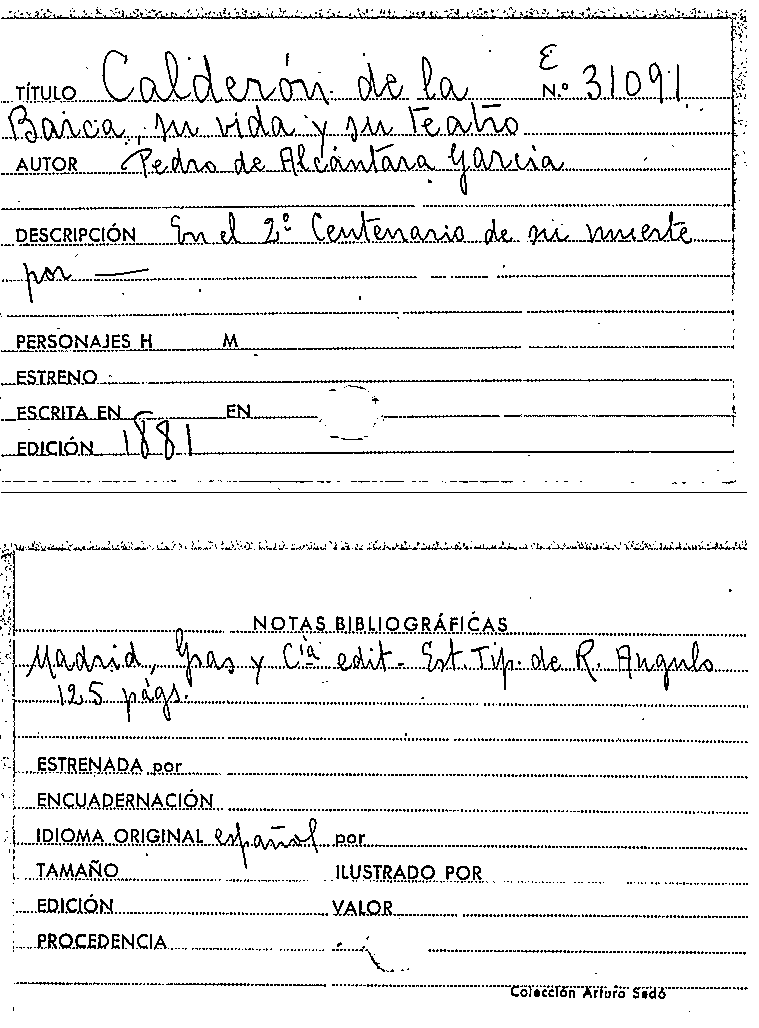 E
TÍTULO Calderón de la N.º 31091
Barca, su vida y su teatro
AUTOR Pedro de Alcántara García
DESCRIPCIÓN En el 2º Centenario de su muerte
por —
PERSONAJES H M
ESTRENO
ESCRITA EN EN
EDICIÓN 1881
NOTAS BIBLIOGRÁFICAS
Madrid, Gras y Cía edit. Est. Tip. de R. Angulo
125 págs.
ESTRENADA por
ENCUADERNACIÓN
IDIOMA ORIGINAL español por
TAMAÑO ILUSTRADO POR
EDICIÓN VALOR
PROCEDENCIA
Colección Arturo Sedó